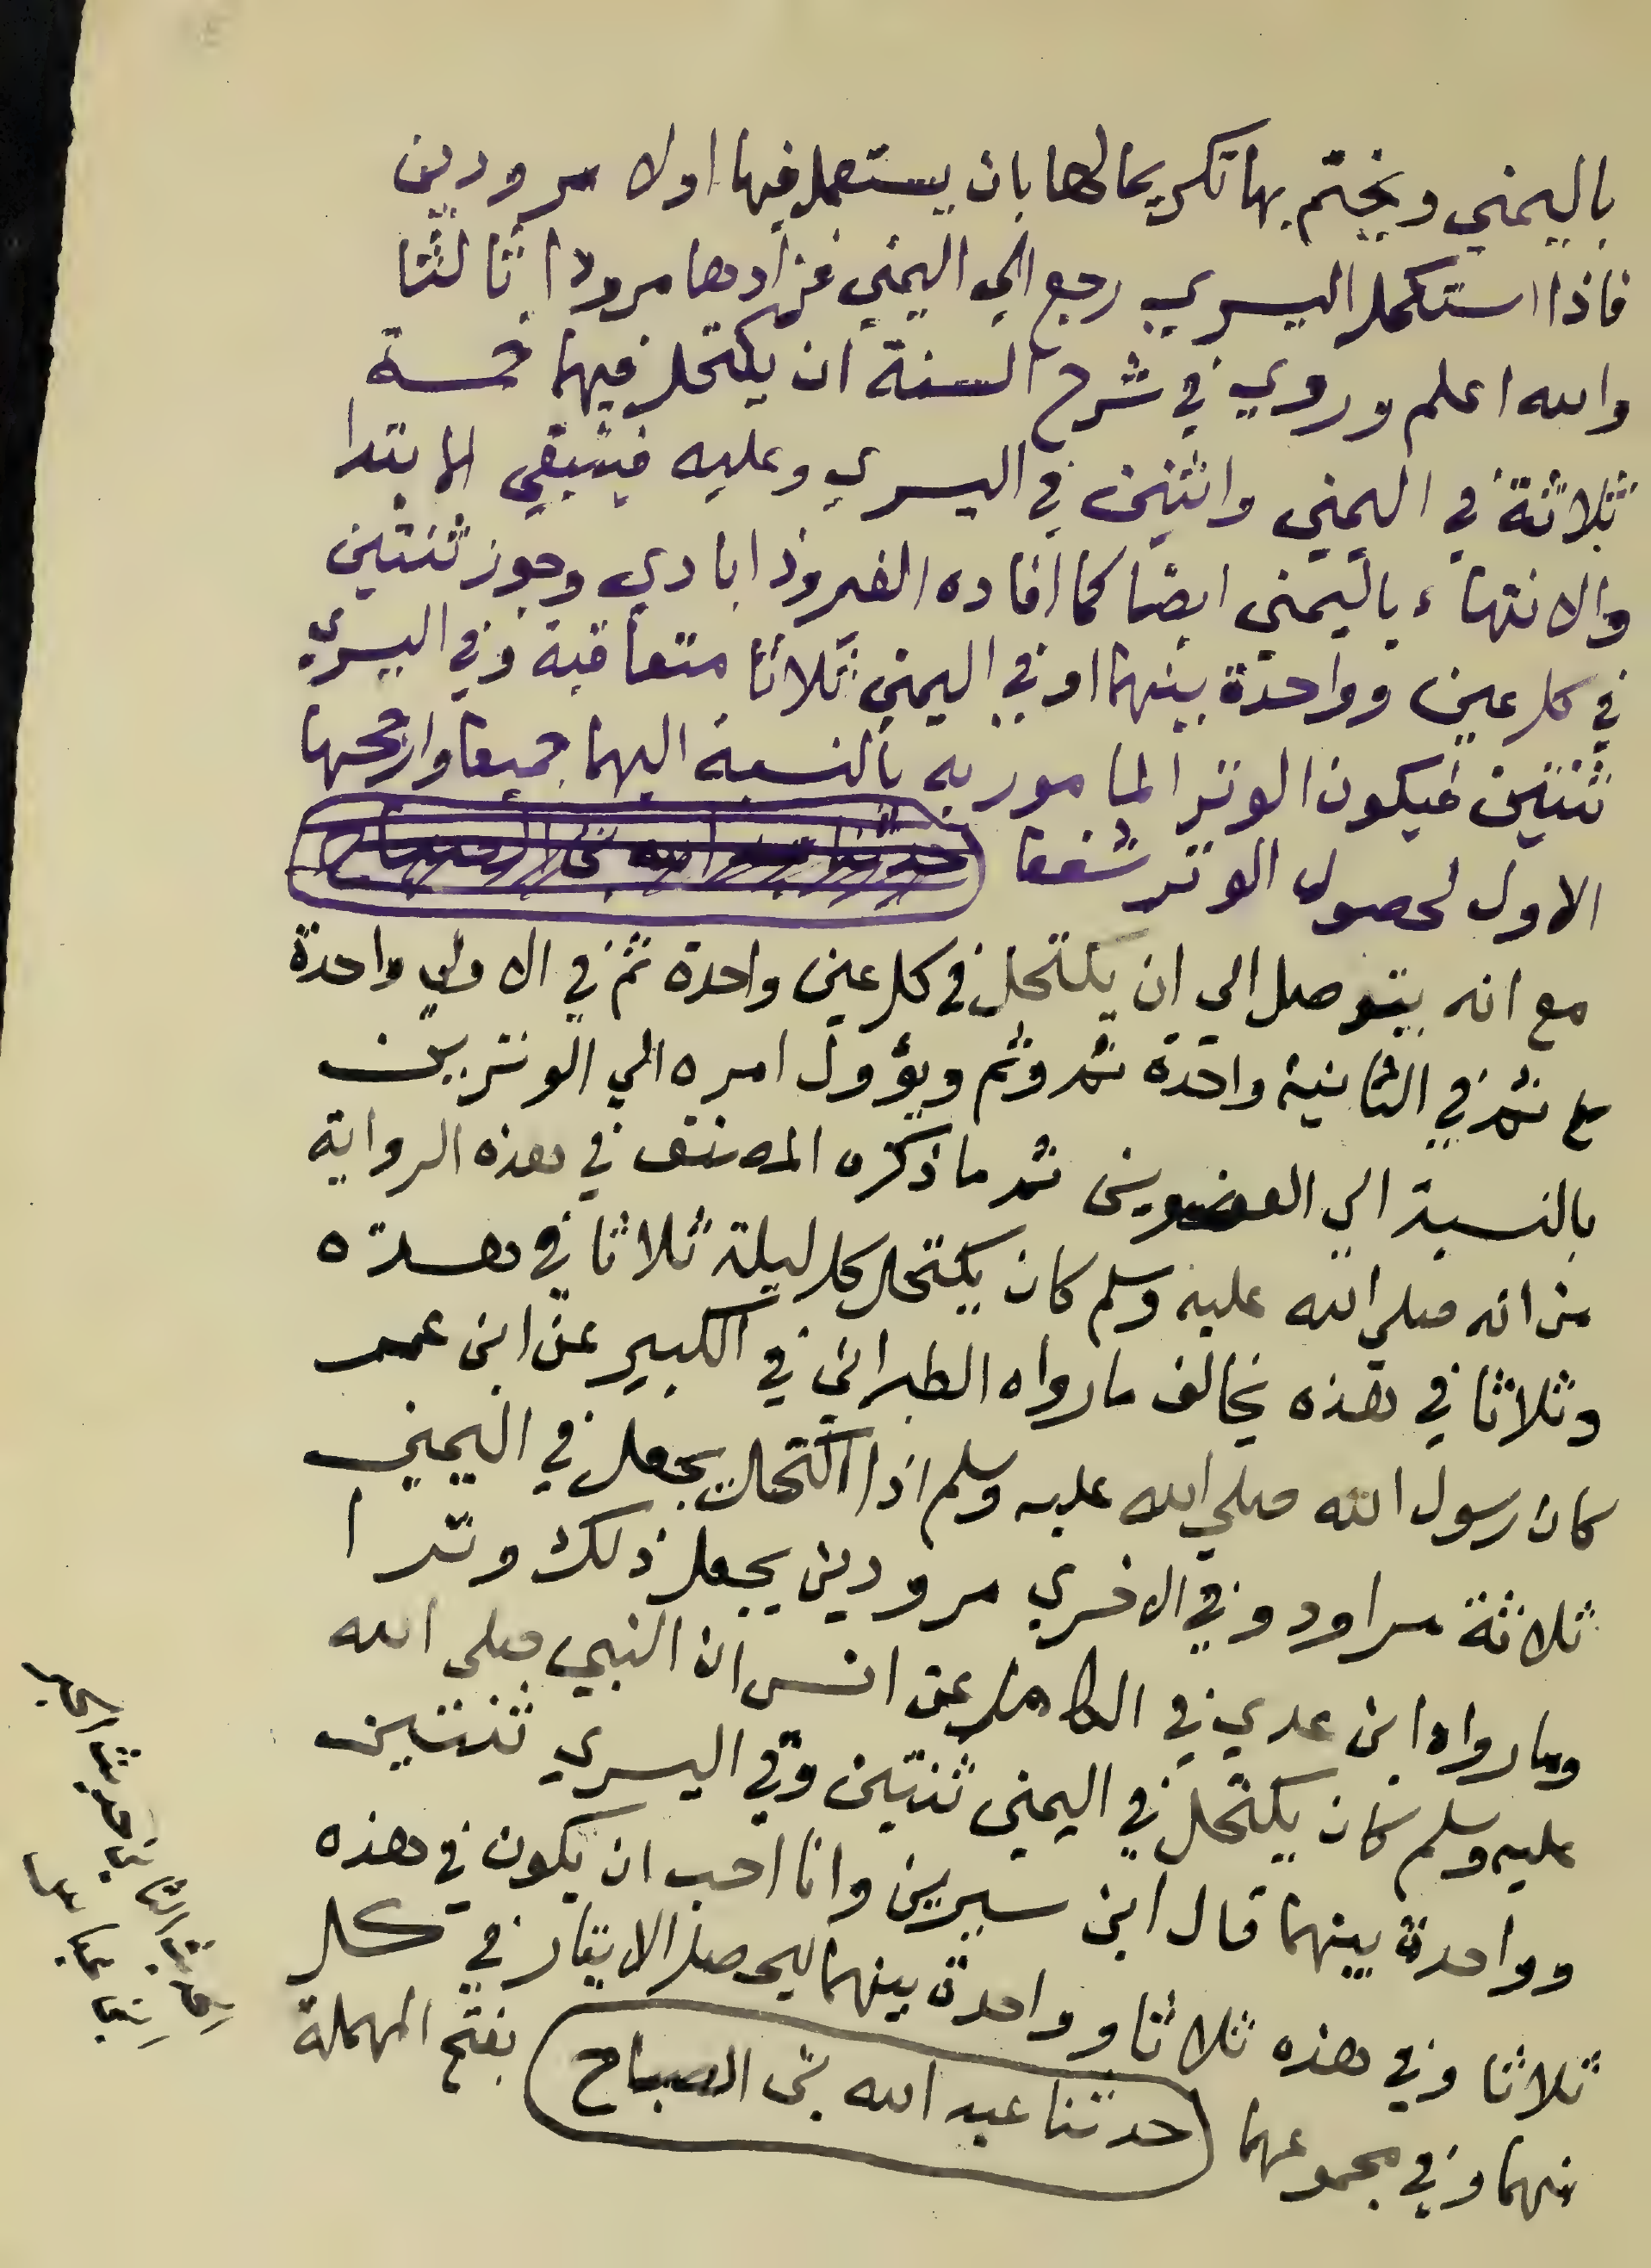 باليمني ويختم بها تكريما لها بان يستعمل فيها اولا مرودين
فاذا استكمل اليسري رجع الي اليمني فزادها مرودا ثالثا
والله اعلم وروي في شرح السنة ان يكتحل فيهما خمسة
ثلاثة في اليمني واثنين في اليسري وعليه فينبغي الابتدا
والانتهاء باليمني ايضا كما افاده الفيروذابادي وجوز ثنتين
في كل عين وواحدة بينهما او في اليمني ثلاثا متعاقبة وفي اليسري
ثنتين فيكون الوتر المامور به بالنسبة اليهما جميعا وارجحها
الاول لحصول الوتر شفعا
مع انه يتوصل الي ان يكتحل في كل عين واحدة ثم في الاولي واحدة
ثم في الثانية واحدة ثم وثم ويؤول امره الي الوترين
بالنسبة الي العضوين ثم ما ذكره المصنف في هذه الرواية
من انه صلي الله عليه وسلم كان يكتحل كل ليلة ثلاثا في هذه
وثلاثا في هذه يخالف ما رواه الطبراني في الكبير عن ابن عمر
كان رسول الله صلي الله عليه وسلم اذا اكتحل يجعل في اليمني
ثلاثة مراود وفي الاخري مرودين يجعل ذلك وترا
وما رواه ابن عدي في الكامل عن انس ان النبي صلي الله
عليه وسلم كان يكتحل في اليمني ثنتين وفي اليسري ثنتين
وواحدة بينهما قال ابن سيرين وانا احب ان يكون في هذه
ثلاثا وفي هذه ثلاثا وواحدة بينهما ليحصل الايتار في كل
منهما وفي مجموعهما حدثنا عبد الله بن الصباح بفتح المهملة
الحديث الثاني حديث الحبر
ابن عباس